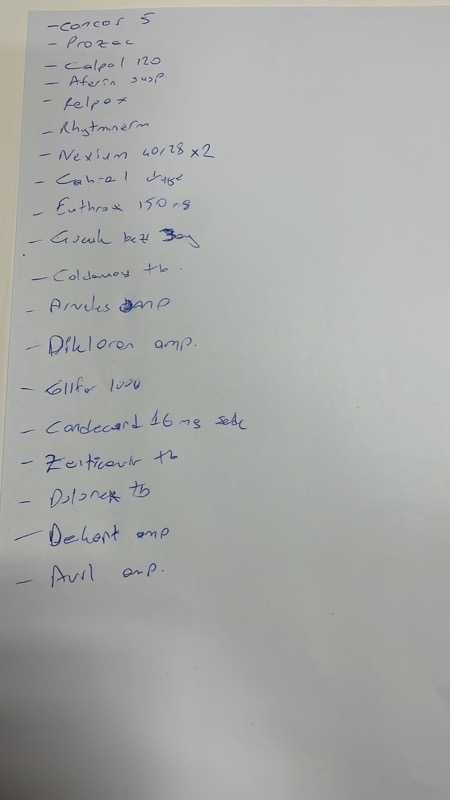 - Concor 5
- Prozac
- Calpol 120
- Aferin susp
- Relpax
- Rhytmnerm
- Nexium 40/28 x2
- Cabral draje
- Euthrox 150 mg
- Çocuk bezi
- Coldamax tb.
- Arveles amp
- Dikloron amp.
- 1000
- Candecard 16 mg sade
- tb
- Dolorex tb
- Dekort amp
- Avil amp.